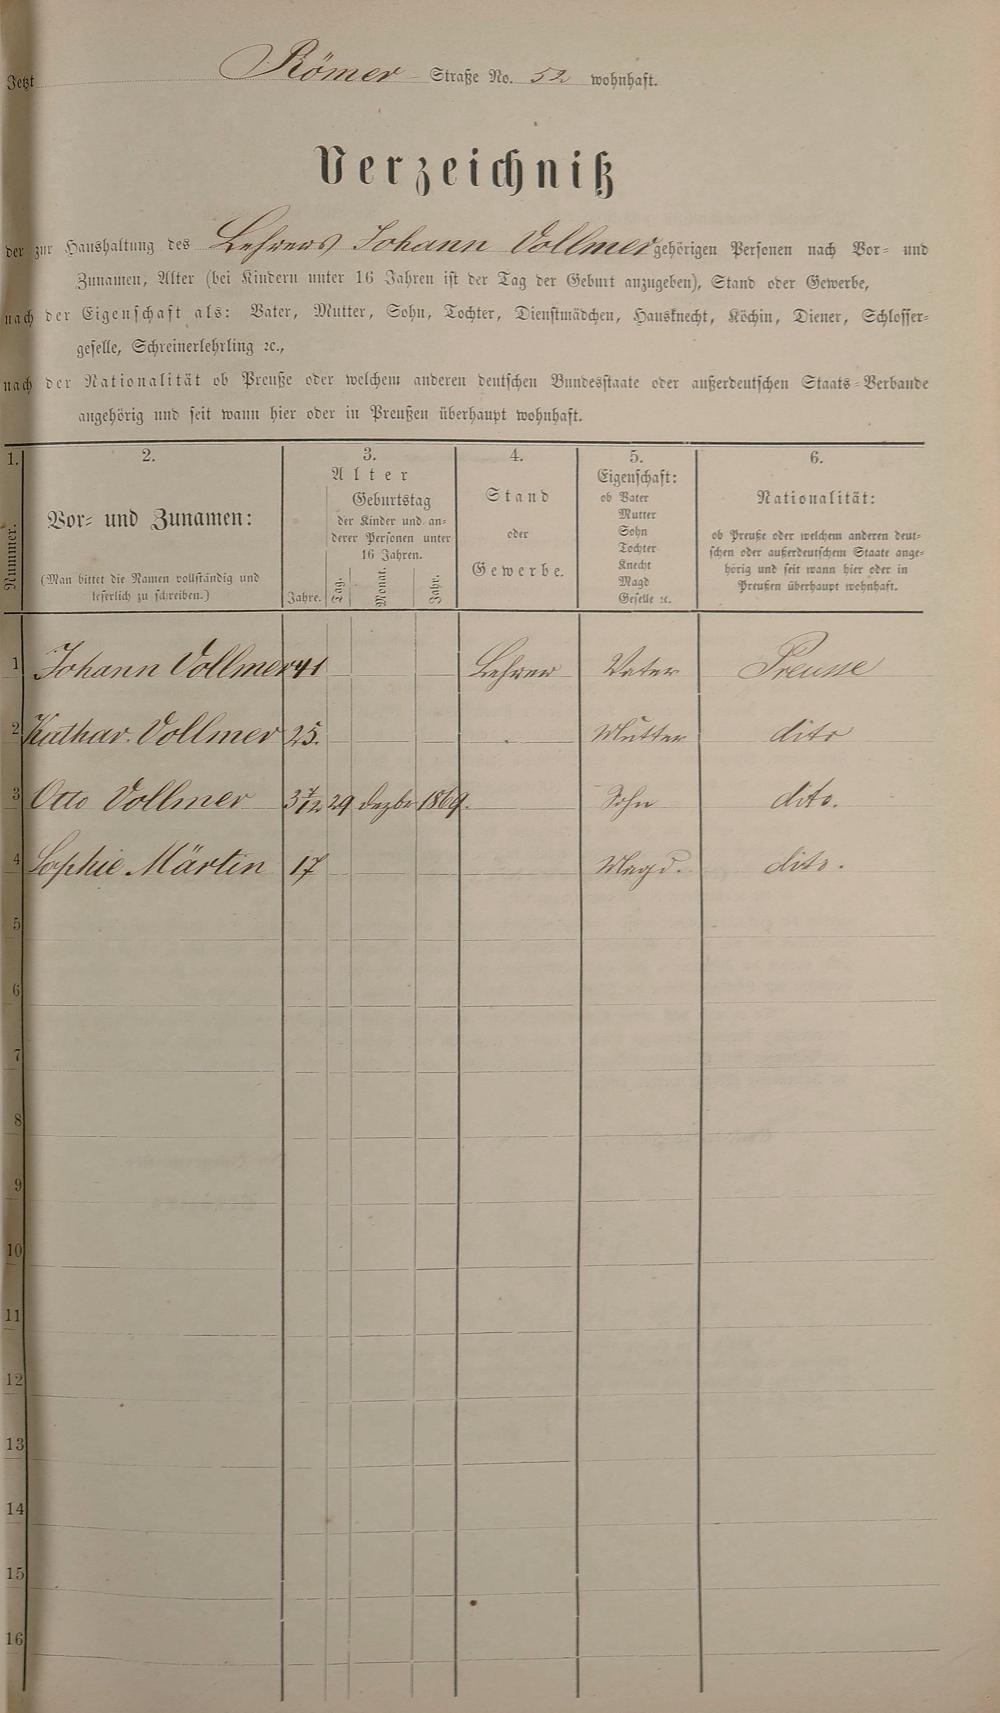 Jetzt Römer Straße No. 52 wohnhaft.
Verzeichniß
der zur Haushaltung des Lehrers Johann Vollmer gehörigen Personen nach Vor- und
Zunamen, Alter (bei Kindern unter 16 Jahren ist der Tag der Geburt anzugeben), Stand oder Gewerbe,
nach der Eigenschaft als: Vater, Mutter, Sohn, Tochter, Dienstmädchen, Hausknecht, Köchin, Diener, Schlosser-
geselle, Schreinerlehrling ꝛc.,
nach der Nationalität ob Preuße oder welchem anderen deutschen Bundesstaate oder außerdeutschen Staats-Verbande
angehörig und seit wann hier oder in Preußen überhaupt wohnhaft.
1. 2. 3. 4. 5. 6.
Nummer.
Vor- und Zunamen:
(Man bittet die Namen vollständig und
leserlich zu schreiben.)
Alter
Jahre.
Geburtstag
der Kinder und an-
derer Personen unter
16 Jahren.
Tag. Monat. Jahr.
Stand
oder
Gewerbe.
Eigenschaft:
ob Vater
Mutter
Sohn
Tochter
Knecht
Magd
Geselle ꝛc.
Nationalität:
ob Preuße oder welchem anderen deut-
schen oder außerdeutschem Staate ange-
hörig und seit wann hier oder in
Preußen überhaupt wohnhaft.
1 Johann Vollmer 41 Lehrer Vater Preusse
2 Kathar. Vollmer 25. Mutter dito
3 Otto Vollmer 3 7/12 29 Dezbr 1869. Sohn dito.
4 Sophie Märtin 17 Magd. dito.
5
6
7
8
9
10
11
12
13
14
15
16